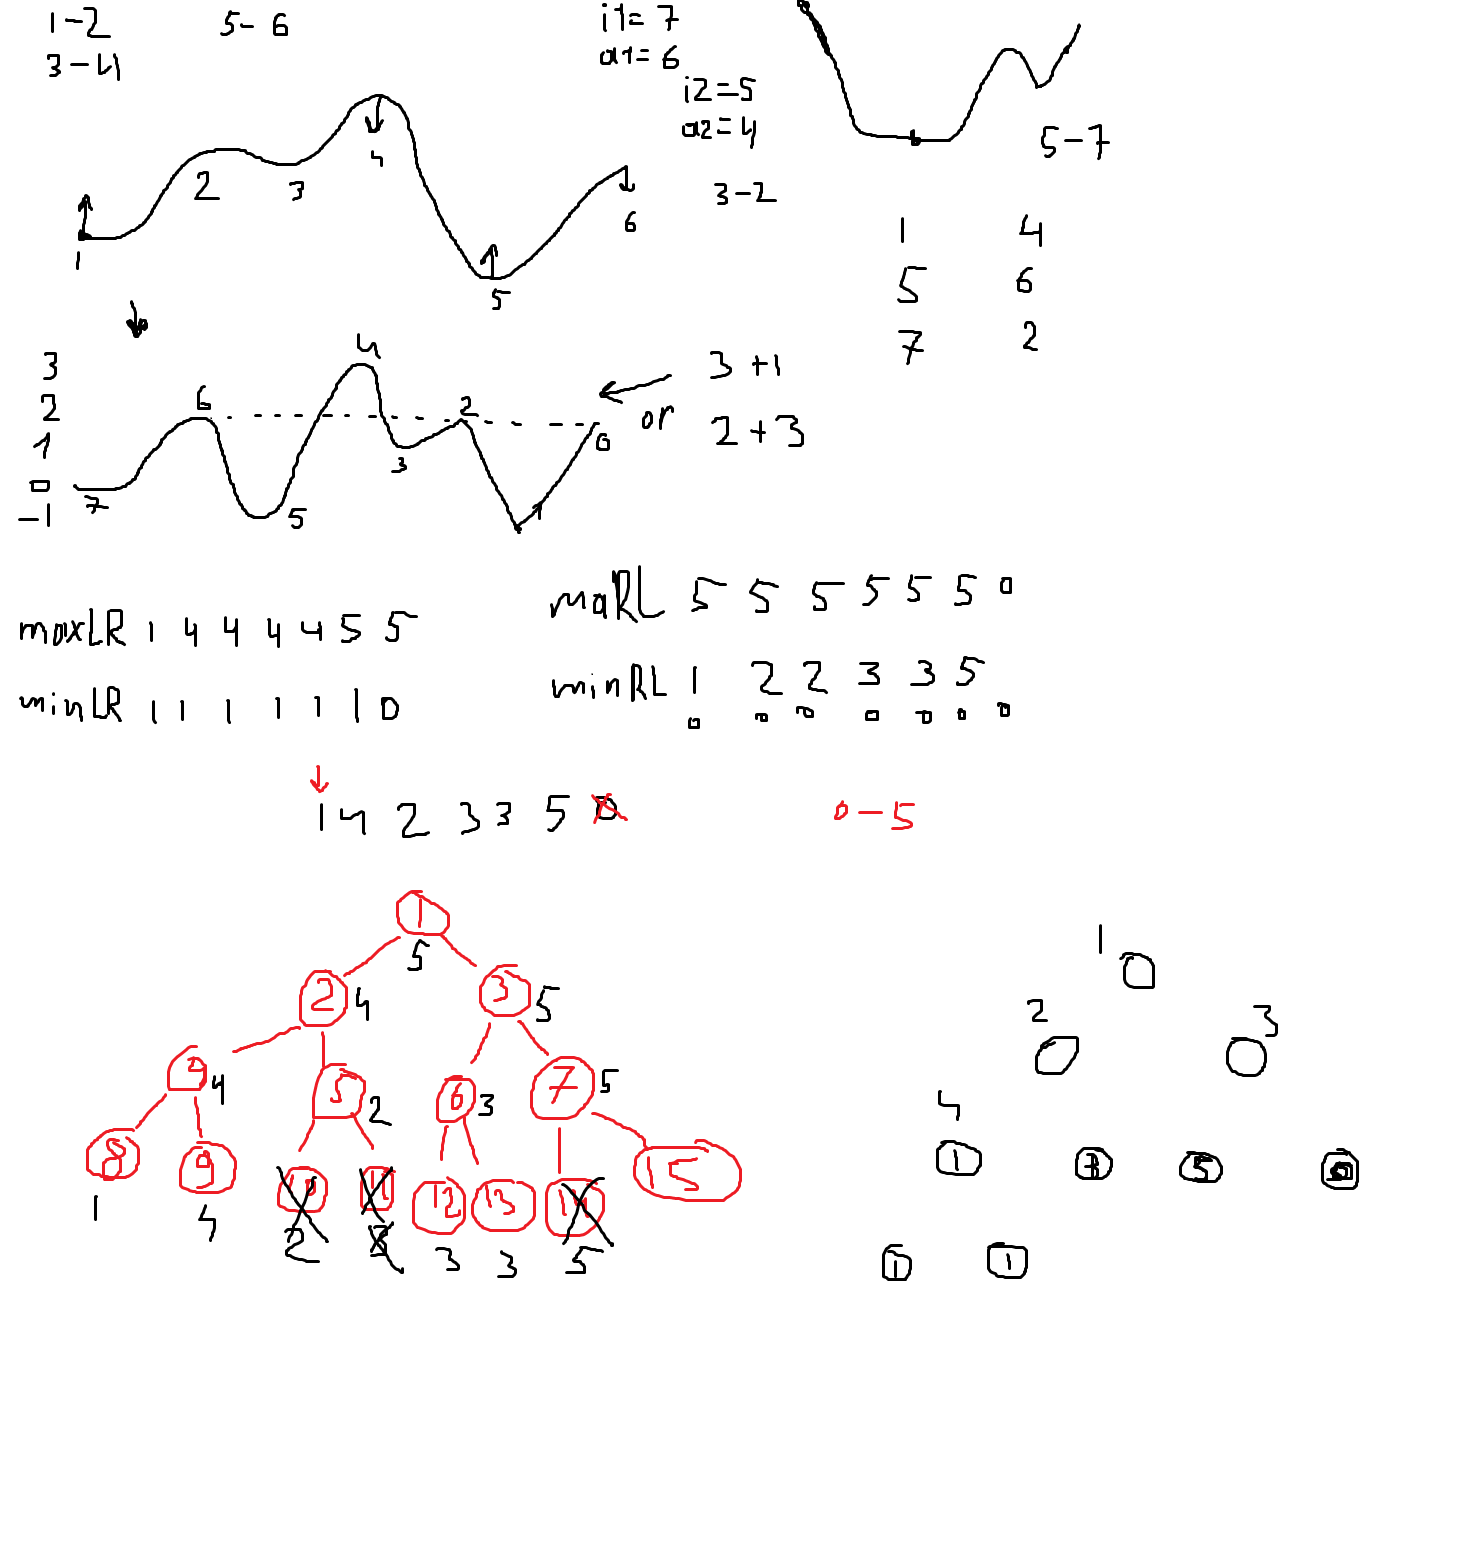 1-2 5-6
3-4
i1=7
a1=6
i2=5
a2=4
3-2
5-7
1 2 3 4 5 6
1 4
5 6
7 2
3
2
1
0
-1
7 6 5 4 3 2 1 0
3+1
or 2+3
maxLR 1 4 4 4 4 5 5
minLR 1 1 1 1 1 1 0
maRL 5 5 5 5 5 5 0
minRL 1 2 2 3 3 5
0 0 0 0 0 0 0
1 4 2 3 3 5 0
0-5
1
5
2 4 3 5
4 5 2 6 3 7 5
8 9 10 11 12 13 14 15
1 4 2 3 3 5
1
2 3
4
1 3 5
1 1